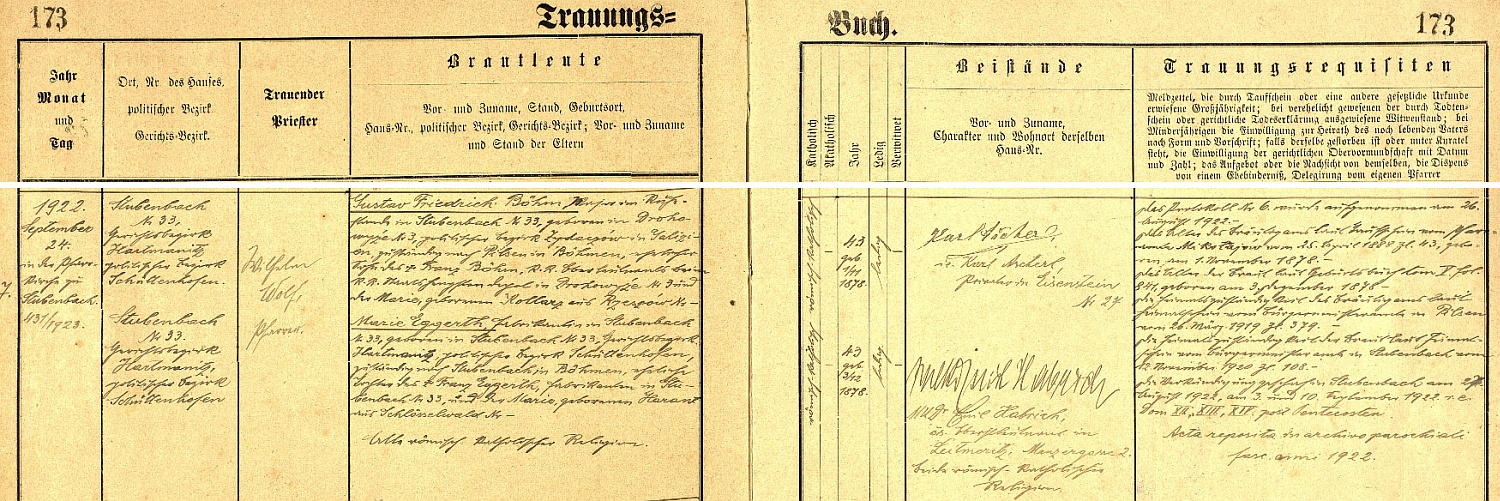 173
Trauungs=
Buch.
173
Jahr
Monat
und
Tag
Ort, Nr des Hauses,
politischer Bezirk
Gerichts-Bezirk.
Trauender
Priester
Brautleute
Vor- und Zuname, Stand, Geburtsort,
Haus-Nr., politischer Bezirk, Gerichts-Bezirk; Vor- und Zuname
und Stand der Eltern
Katholisch
Akatholisch
Jahr
Ledig
Verwitwet
Beistände
Vor- und Zuname,
Charakter und Wohnort derselben
Haus-Nr.
Trauungsrequisiten
Meldzettel, die durch Taufschein oder eine andere gesetzliche Urkunde
erwiesene Großjährigkeit; bei verehelicht gewesenen der durch Todten-
schein oder gerichtliche Todeserklärung ausgewiesene Witwenstand; bei
Minderjährigen die Einwilligung zur Heirath des noch lebenden Vaters
nach Form und Vorschrift; falls derselbe gestorben ist oder unter Kuratel
steht, die Einwilligung der gerichtlichen Obervormundschaft mit Datum
und Zahl; das Aufgebot oder die Nachsicht von demselben, die Dispens
von einem Ehehinderniß, Delegirung vom eigenen Pfarrer
1922.
September
24.
in der Pfarr-
kirche zu
Stubenbach.
431/1923.
Stubenbach
N. 33,
Gerichtsbezirk
Hartmanitz,
politischer Bezirk
Schüttenhofen.
Stubenbach
N. 33.
Gerichtsbezirk
Hartmanitz,
politischer Bezirk
Schüttenhofen
Wilhelm
Wolf,
Pfarrer.
Gustav Friedrich Böhm, Major im Ruhe-
stande in Stubenbach N. 33, geboren in Droho-
wyże N. 3, politischer Bezirk Żydaczów in Galizi-
en, zuständig nach Pilsen in Böhmen, ehelicher
Sohn des † Franz Böhm, k.k. Oberleutnants beim
k.k. Militärhengsten depot in Drohowyże N. 3 und
der Marie, geborenen Kollarz aus Rzeszów N. –
Marie Eggerth, Fabrikantin in Stubenbach
N. 33, geboren in Stubenbach N. 33, Gerichtsbezirk
Hartmanitz, politischer Bezirk Schüttenhofen,
zuständig nach Stubenbach in Böhmen, eheliche
Tochter des † Franz Eggerth, Fabrikanten in Stu-
benbach N. 33, und der Marie, geborenen Harant
aus Schlösselwald N. –
Alle römisch-katholischer Religion.
43
geb
1/11
1878.
ledig
43
geb
3/12
1878.
ledig.
Karl
Karl
Eisenstein
N. 27
MUDr Emil Habrich,
Leitmeritz,
beide römisch-katholischer
Religion.
Das Protokoll N. 6 wurde aufgenommen am 26.
August 1922. –
Das Alter des Bräutigams laut Taufschein vom Pfarr-
amte vom 25. April 1888 Zl. 43, gebo-
ren am 1. November 1878. –
Das Alter der Braut laut Geburtsbuch tom. V. fol.
geboren am 3. Dezember 1878 –
Die Heimatzuständigkeit des Bräutigams laut
Heimatschein vom Bürgermeisteramte in Pilsen
vom 26. März 1919 Zl. 379. –
Die Heimatzuständigkeit der Braut laut Heimat-
schein vom Bürgermeisteramt in Stubenbach vom
November 1920 Zl. 108. –
Die Verkündigung geschah in Stubenbach am 27.
August 1922, am 3. und 10. September 1922. i.e.
Dom XII, XIII, XIV. post Pentecosten.
Acta reposita in archivo parochiali
fasc. anni 1922.